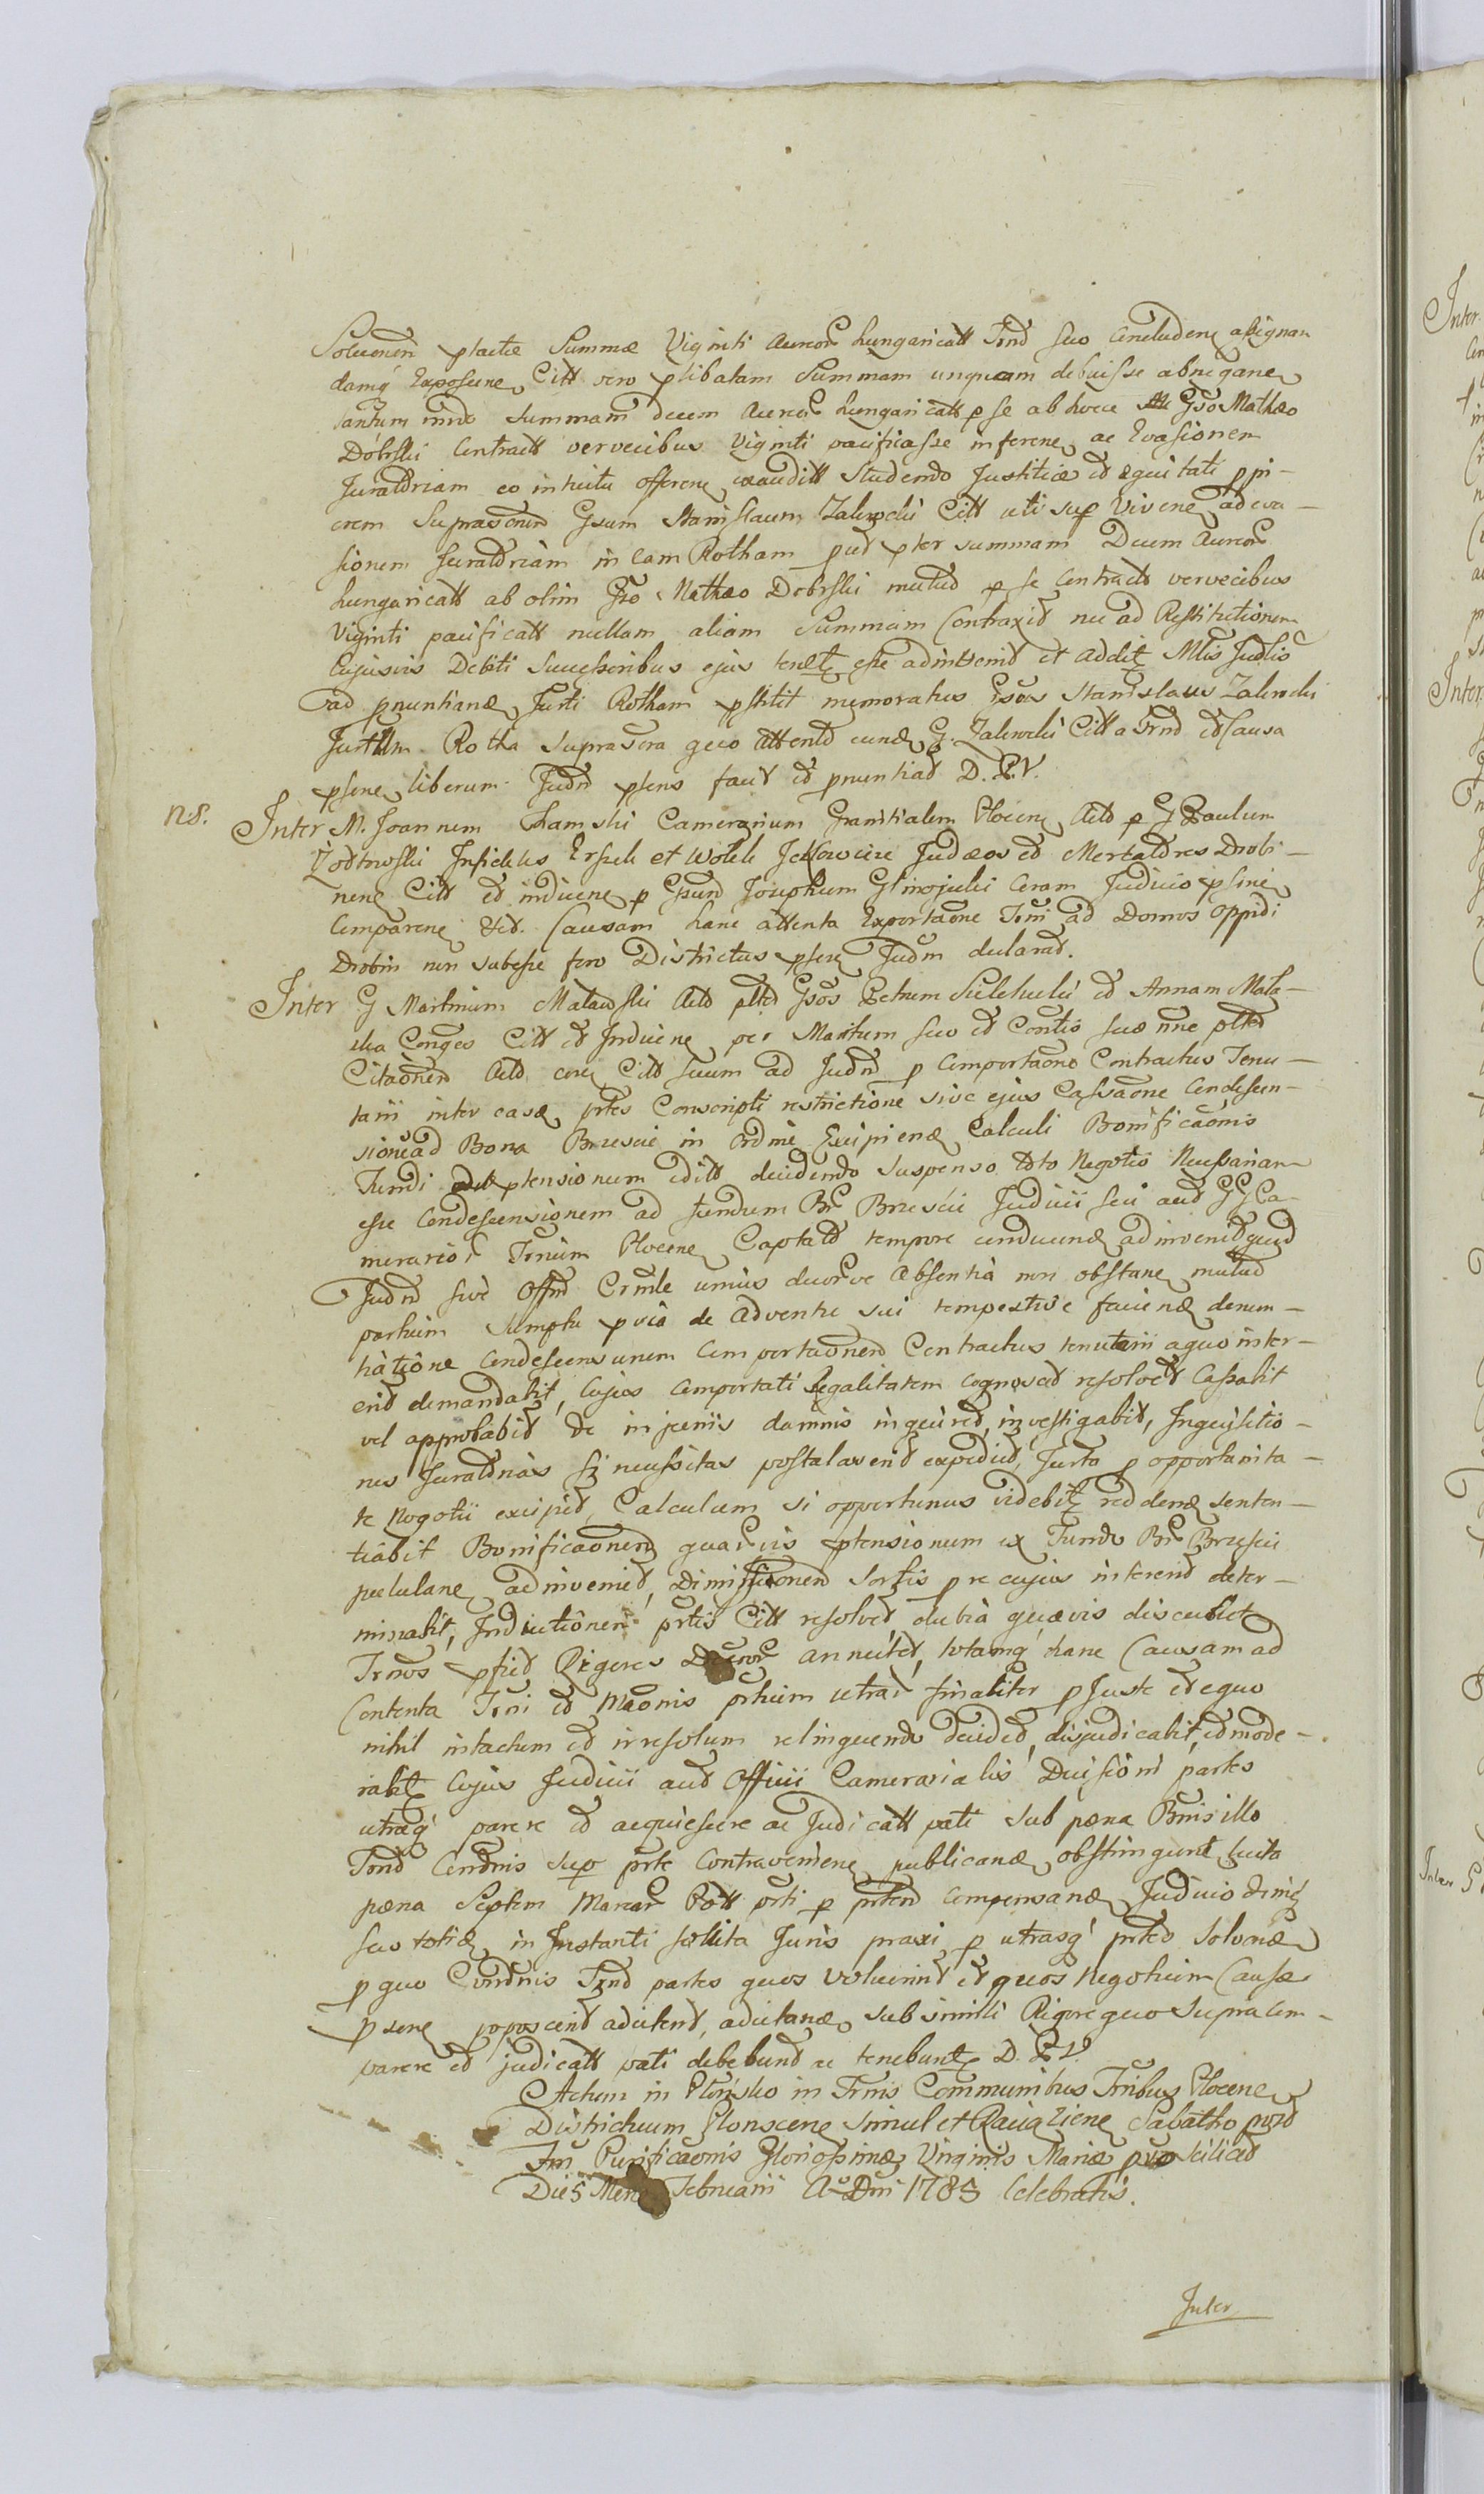 Solutionem ptactæ Summæ Viginti Aureor hungaricall Trnd suo Concludene assignan
damq Exposcene, Citt vero plibatam Summam unquam debuisse abnegane
tantum modo summam decem Aureor hungaricall p se ab hocce Gso Mathæo
Dobrski Contract vervecibus Viginti pacificasse inferene, ac Evasionem
Juratoriam eo intuitu offerene exauditt Studendo Justitiæ et æquitati p pi-
orem Suprascrum Gsum Stanislaum Zalewski Citt uti sup Vivene ad eva-
sionem Juratoriam in eam Rotham quod pter summam Decem Aureor
hungaricall ab olim Gso Mathæo Dobrski mutuo p se Contract vervecibus
Viginti pacificatt nullam aliam Summam Contraxit nec ad Restitutionem
Cujusvis Debiti Successoribus ejus tenetr esse adinvenit et addit Mtis Judlis
ad pnuntiand Jurti Rotham pstitit memoratus Gsus Stanislaus Zalewski
Juxta Rotha Suprascra quo Attento eund G. Zalewski Citt a Trnd et Causa
psene liberum Judm psens facit et pnuntiat D. P. V.
ns. Inter M. Joannem Chamski Camerarium Granitialem Plocene Act p G Paulum
Infideles Erszek et Wolek Jckowicze Judæos et Mercatores Drobi-
nene Citt et inducene p Gsum Josephum Glinojecki Coram Judicio psine
Comparene Act. Causam hanc attenta Exportaone Trni ad Domos Oppidi
Drobin non subesse foro Districtus psene Judm declarat.
Inter G Martinum Act pltd Gsos Petrum et Annam Mala-
ska Conges Citt et Inducene per Maritum suo et Contis suæ nne pltd
Citaonem Act cone Citt suum ad Judm p Comportaone Contractus Tenu-
tarii inter easd ptes Conscripti restrictione sive ejus Cassaone Condescen-
sione ad Bona Bruscie in ordine Excipiend Calculi Bonificaonis
Fundi ptensionum edit decidendo Suspenso toto Negotio Necessariam
esse Condescensionem ad fundum Br Bruscie Judicii seu aut GG Ca-
merarior Trnum Plocene Captato tempore conducend adinvenit quod
Judm sive Offm Crmle unius duorve absentia non obstane mutuo
partium Sumptu pvia de Adventu sui tempestive faciend denun-
tiatione Condescensurum Comportaonem Contractus tenutarii a quo inter-
erit demandabit, Cujus comportati legalitatem cognoscet resolvet Cassabit
vel approbabit de injuriis damnis inquiret, investigabit, Inquisitio-
nes Juratorias si necessitas postulaverit expediet, Jurta p opportunita-
te Negotii excipiet, Calculum si opportunus videbitr reddend senten-
tiabit Bonificaonem quarvis ptensionum ex Fundo Br Bruscie
pululane adinveniet, Dimissionem Sortis p re cujus intererit deter-
minabit, Inductionem ptis Citt resolvet, dubia quævis discutiet
Trnos pfiet Rigores annectet, totamq hanc Causam ad
Contenta Trni et Maonis ptium utrar finaliter p Juste et æquo
nihil intactum et irresolum relinquendo decidet, dijudicabit, et mode-
rabit Cujus Judicii aut Officii Camerarialis Decisioni partes
utræq parere et acquiescere ac Judicatt pati sub pæna Bnis illo
Trnd Condnis sup pte Contravenene publicand obstringunt luita
pæna Septem Marcar Poll pti p ptem compensand Judicio denq
suo totid in Instanti solita Juris praxi p utrasq ptes Solvend
p quo Condnis Trnd partes quos Voluerint et quos Negotium Causæ
psene poposcerit adcitent, adcitand sub simili Rigore quo supra com-
parere et judicatt pati debebunt ac tenebuntr D. P. V.
Actum in Płońsko in Trnis Communibus Trnibus Plocene
Districtuum Plonscene simul et Raciąziene Sabatho post
Fm Purificaonis Gloriossimæ Virginis Mariæ pxo scilicet
Die 5 Mene Februarii Ao Dni 1785 Celebratis.
Inter